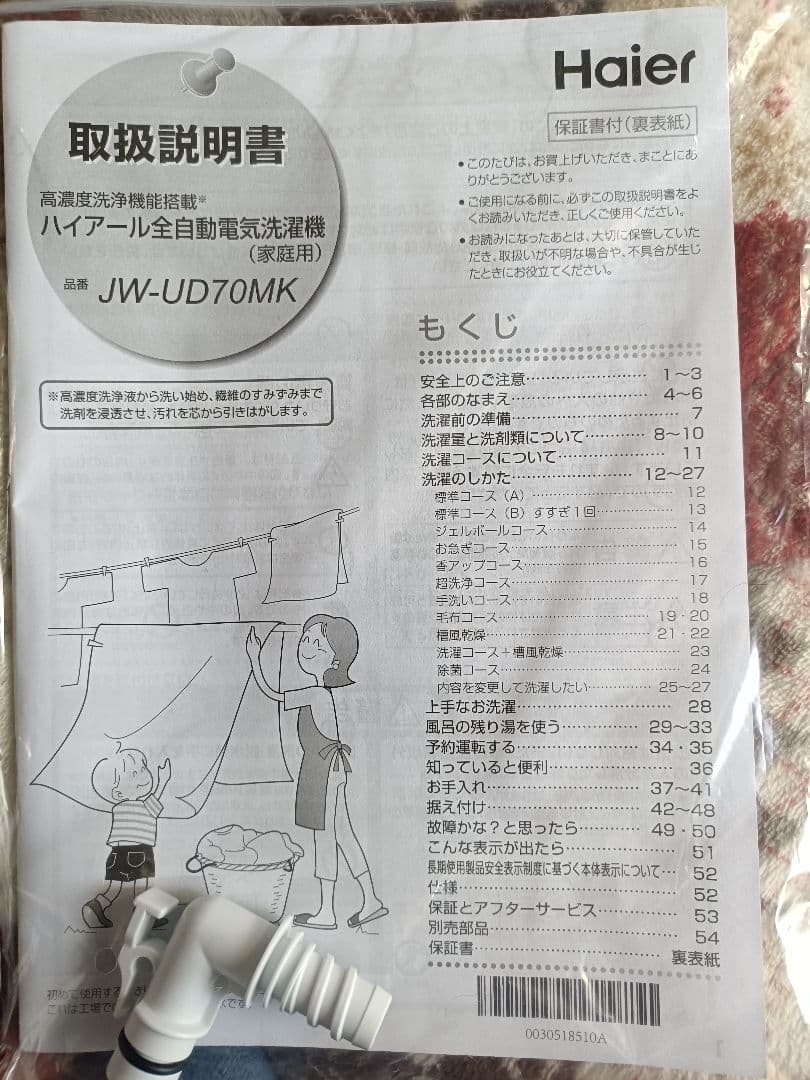 Haier
保証書付(裏表紙)
取扱説明書
高濃度洗浄機能搭載※
ハイアール全自動電気洗濯機
(家庭用)
品番 JW-UD70MK
※高濃度洗浄液から洗い始め、繊維のすみずみまで
洗剤を浸透させ、汚れを芯から引きはがします。
●このたびは、お買上げいただき、まことにあ
りがとうございます。
●ご使用になる前に、必ずこの取扱説明書をよ
くお読みいただき、正しくご使用ください。
●お読みになったあとは、大切に保管していた
だき、取扱いが不明な場合や、不具合が生じ
たときにお役立てください。
もくじ
安全上のご注意……………………1~3
各部のなまえ………………………4~6
洗濯前の準備…………………………7
洗濯量と洗剤類について…………8~10
洗濯コースについて…………………11
洗濯のしかた……………………12~27
標準コース(A)……………………12
標準コース(B)すすぎ1回…………13
ジェルボールコース…………………14
お急ぎコース…………………………15
香アップコース………………………16
超洗浄コース…………………………17
手洗いコース…………………………18
毛布コース………………………19・20
槽風乾燥…………………………21・22
洗濯コース+槽風乾燥………………23
除菌コース……………………………24
内容を変更して洗濯したい………25~27
上手なお洗濯…………………………28
風呂の残り湯を使う……………29~33
予約運転する……………………34・35
知っていると便利……………………36
お手入れ…………………………37~41
据え付け…………………………42~48
故障かな?と思ったら…………49・50
こんな表示が出たら…………………51
長期使用製品安全表示制度に基づく本体表示について…52
仕様……………………………………52
保証とアフターサービス……………53
別売部品………………………………54
保証書……………………………裏表紙
初めて使用する
これは工場で
0030518510A